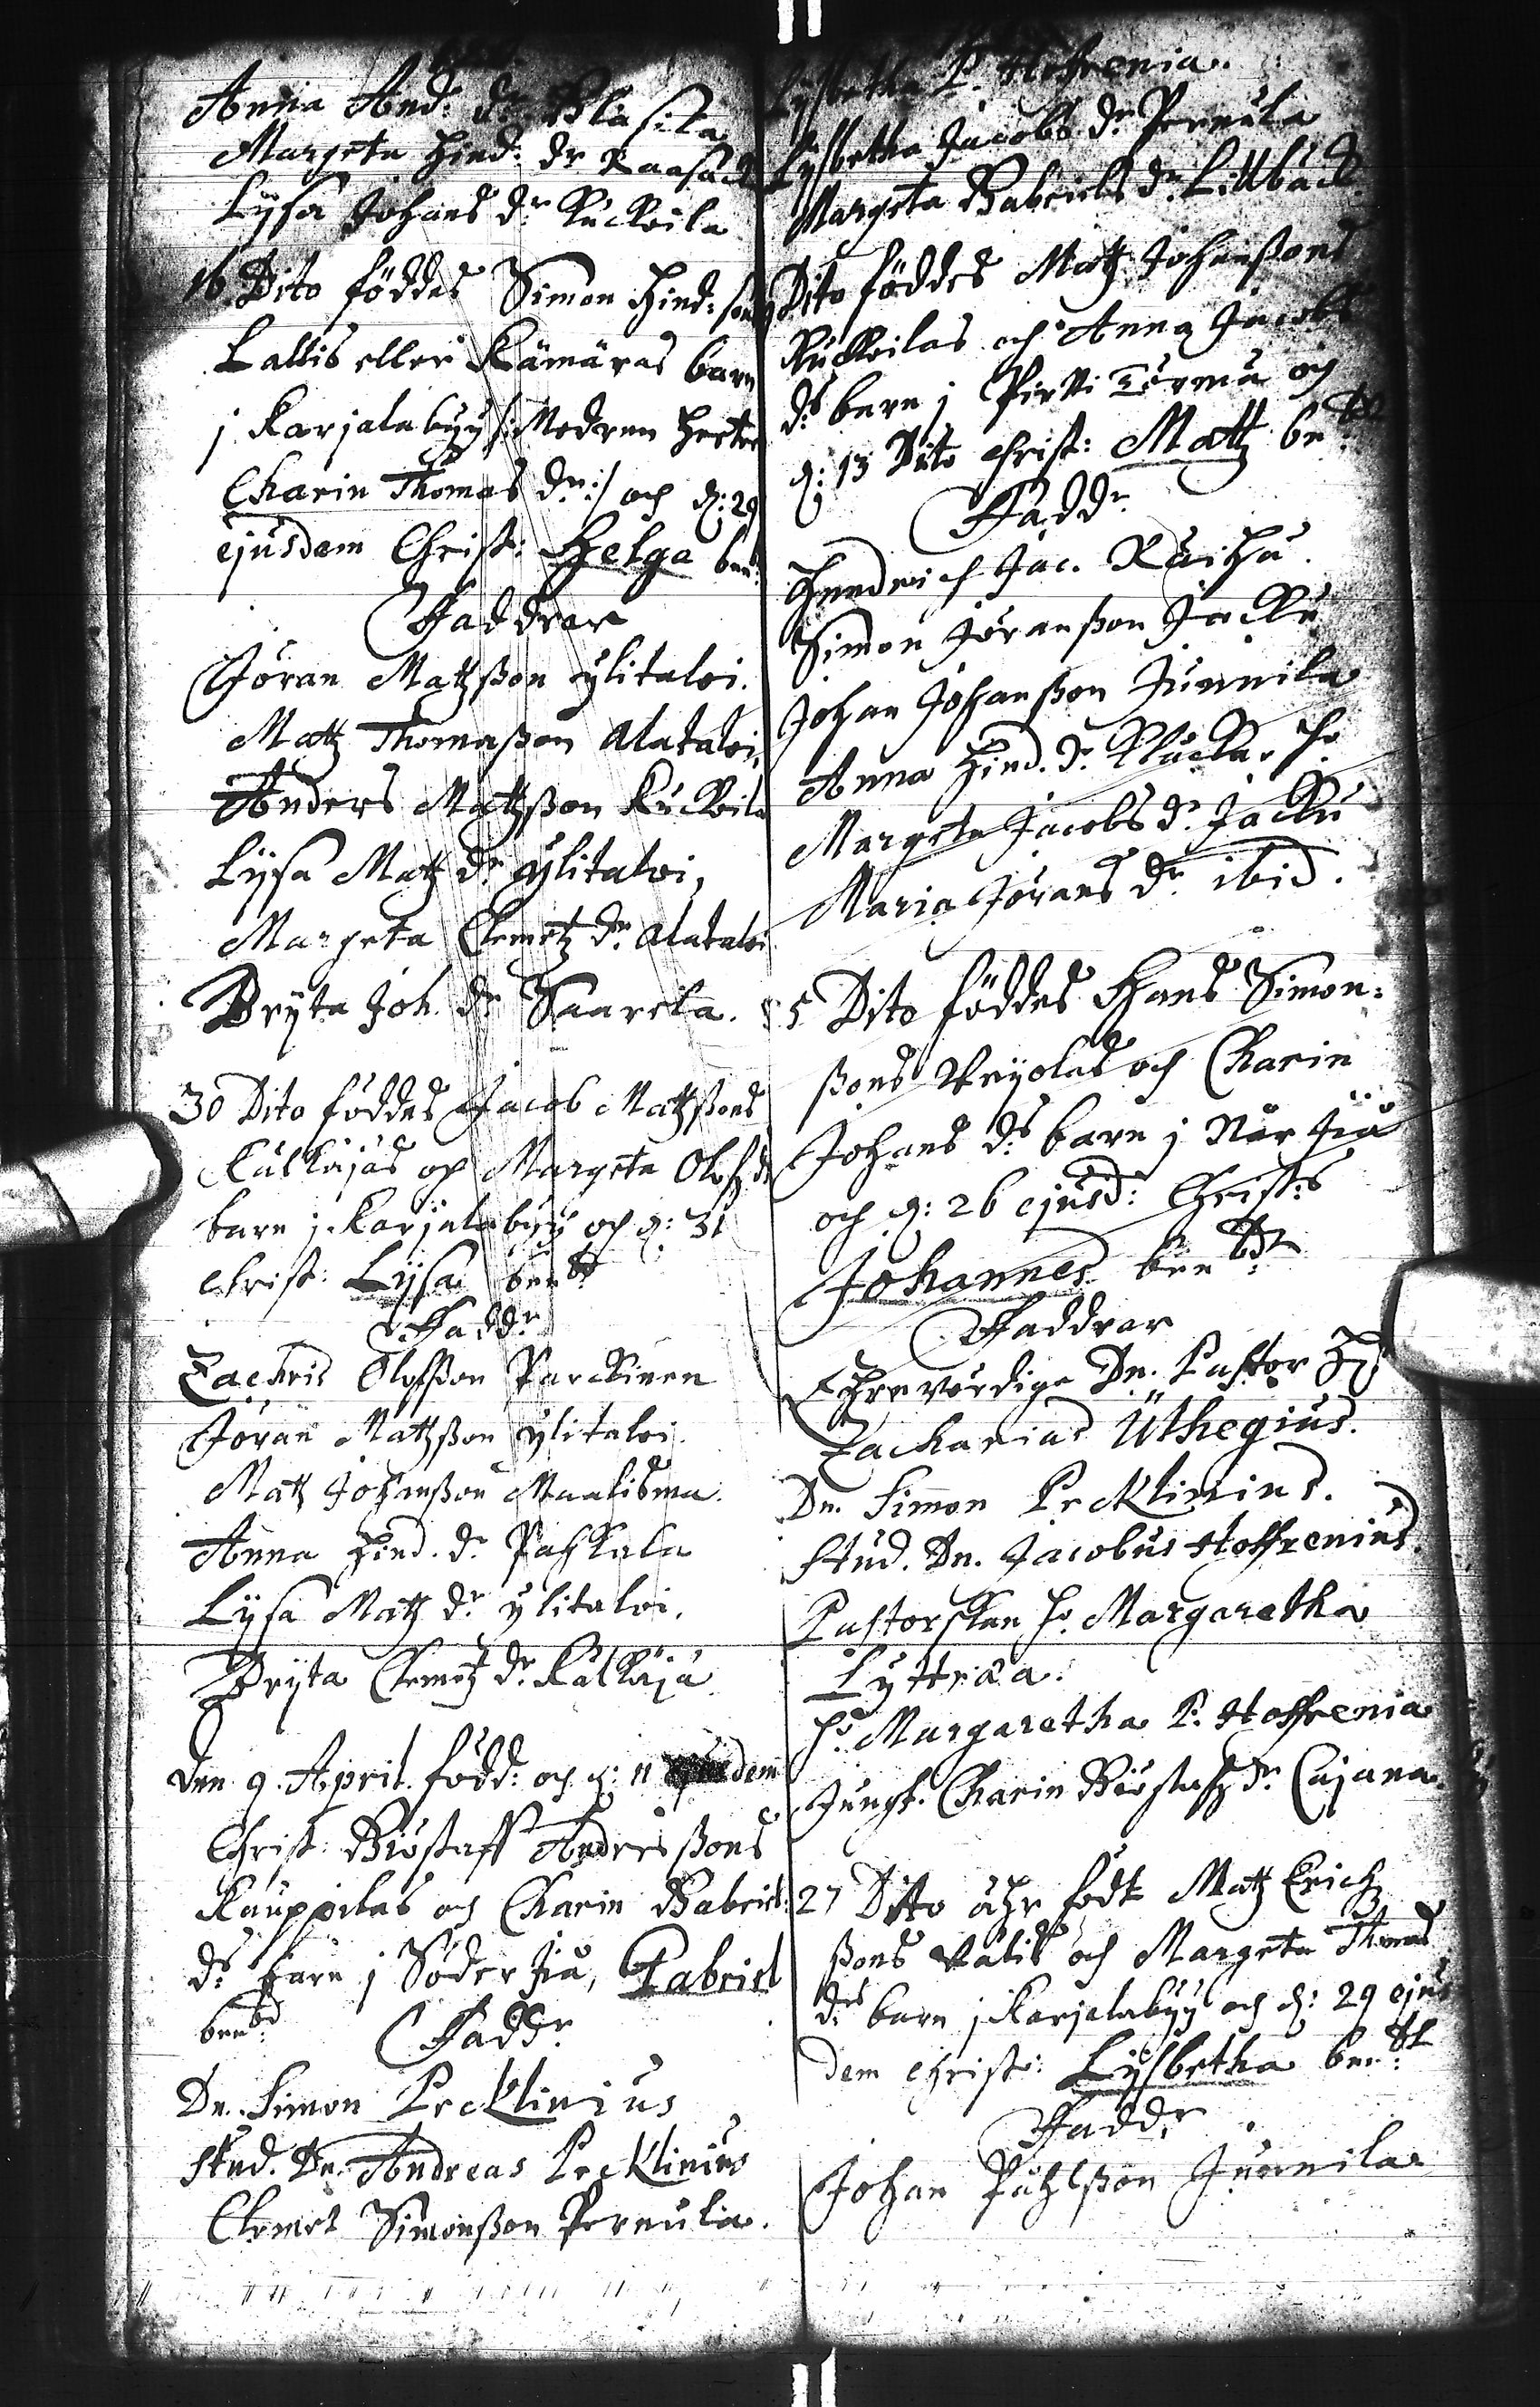 Anna And: dr Klasila
Margeta Hind: dr Raasack
Lysa Johans dr Kuckoila
16 Dito föddes Simon Hind: sons
Lallis eller Kämäras barn
j Karjalabyy /: Modren heeter
Charin Thomas dr :/ och d: 29
ejusdem Christ: Helga ben:
Faddrar
Jöran Matzßon ylitaloi.
Matz Thomaßon Alataloi,
Anders Matzßon Kuckoila
Lysa Matz dr ylitaloi,
Margeta Clemetz dr Alataloi
Bryta Joh. dr Saarela.
30 Dito föddes Jacob Matzßons
Kulkajas och Margeta Olofz dr
barn j Karjalabyy och d: 31
christ: Lysa benbd
Faddr
Zachris Olofßon Parckinen
Jöran Matzßon ylitaloi.
Matz Johanßon Maalisma.
Anna Hind. dr Paskala
Lysa Matz dr ylitaloi.
Bryta Clemetz dr Kulkaja
den 9. April. född: och d: 11 ejusdem
Christ: Giöstaff Anderßons
Kauppilas och Charin Gabriels
ds barn j Söder Jiå, Gabriel
benbd:
Faddr
Dn. Simon Peeklinius
stud. Dn. Andreas Peeklinius
Clemet Simonßon Pernula.
Lysbetha P. Hoffrenia.
Lysbetha Jacobs dr Pernula
Margeta Gabriels dr Lillbäck
Dito föddes Matz Johanßons
Kuckoilas och Anna Jacobs
ds barn j Pirtti Törmä och
d: 13 Dito christ: Matz be:
Faddr
Hendrich Jac. Raiha.
Simon Jöranßon Jacku
Johan Johanßon Junnila
Anna Hind. dr Kluckar h:
Margeta Jacobs dr Jacku
Maria Jörans dr ibid.
5 Dito föddes Hans Simon:
ßons Veyolas och Charin
Johans ds barn j Når Jiå
och d: 26 ejusd: Christ:s
Johannes benbdt
Faddrar
Ehrevördige Dn. Pastor H:
Zacharias Uthegius.
Dn. Simon Peeklinius.
Stud. Dn. Jacobus Hoffrenius.
Pastorskan h: Margaretha
Lyttræa.
h: Margaretha P. Hoffrenia
Jungf. Charin Giöstafz dr Cajana.
27 Ditto ähr födt Matz Erich
ßons Välis och Margeta Thomas
ds barn j Karjalabyy och d: 29 ejus
dem christ: Lysbetha ben:
Faddr
Johan Påhlßon Junnila